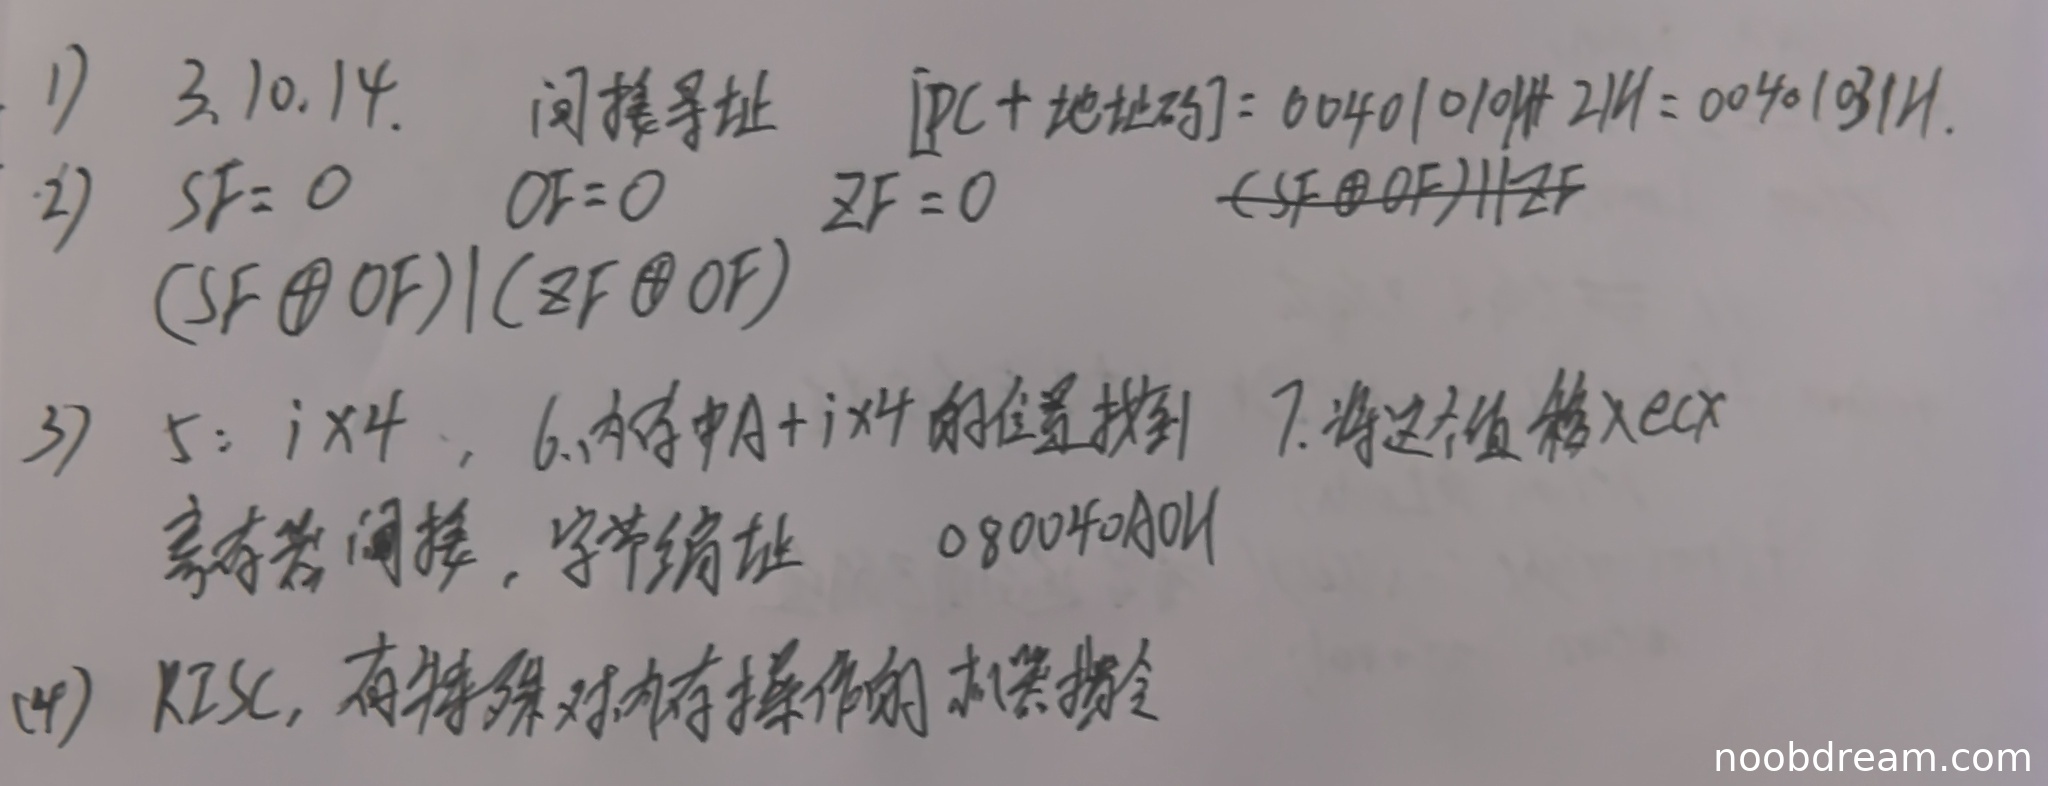 1) 3. 10. 14. 间接寻址 [PC + 地址码] = 00401010H + 21H = 00401031H.
2) SF = 0 OF = 0 ZF = 0 (SF ⊕ OF) || ZF
(SF ⊕ OF) | (ZF ⊕ OF)
3) 5: i×4, 6. 内存中A+i×4的位置找到 7. 将这个值移入ecx
寄存器间接, 字节编址 080040A0H
(4) RISC, 有特殊对内存操作的机器指令
noobdream.com